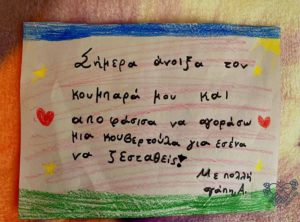 Σήμερα άνοιξα τον
κουμπαρά μου και
αποφάσισα να αγοράσω
μια κουβερτούλα για εσένα
να ζεσταθείς!
Με πολλή
αγάπη, Α.